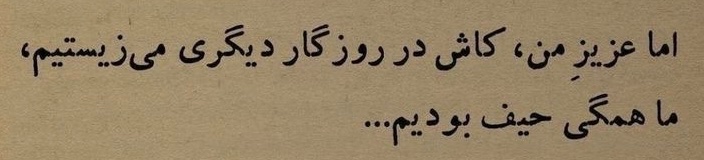 اما عزیزِ من، کاش در روزگار دیگری می‌زیستیم،
ما همگی حیف بودیم...